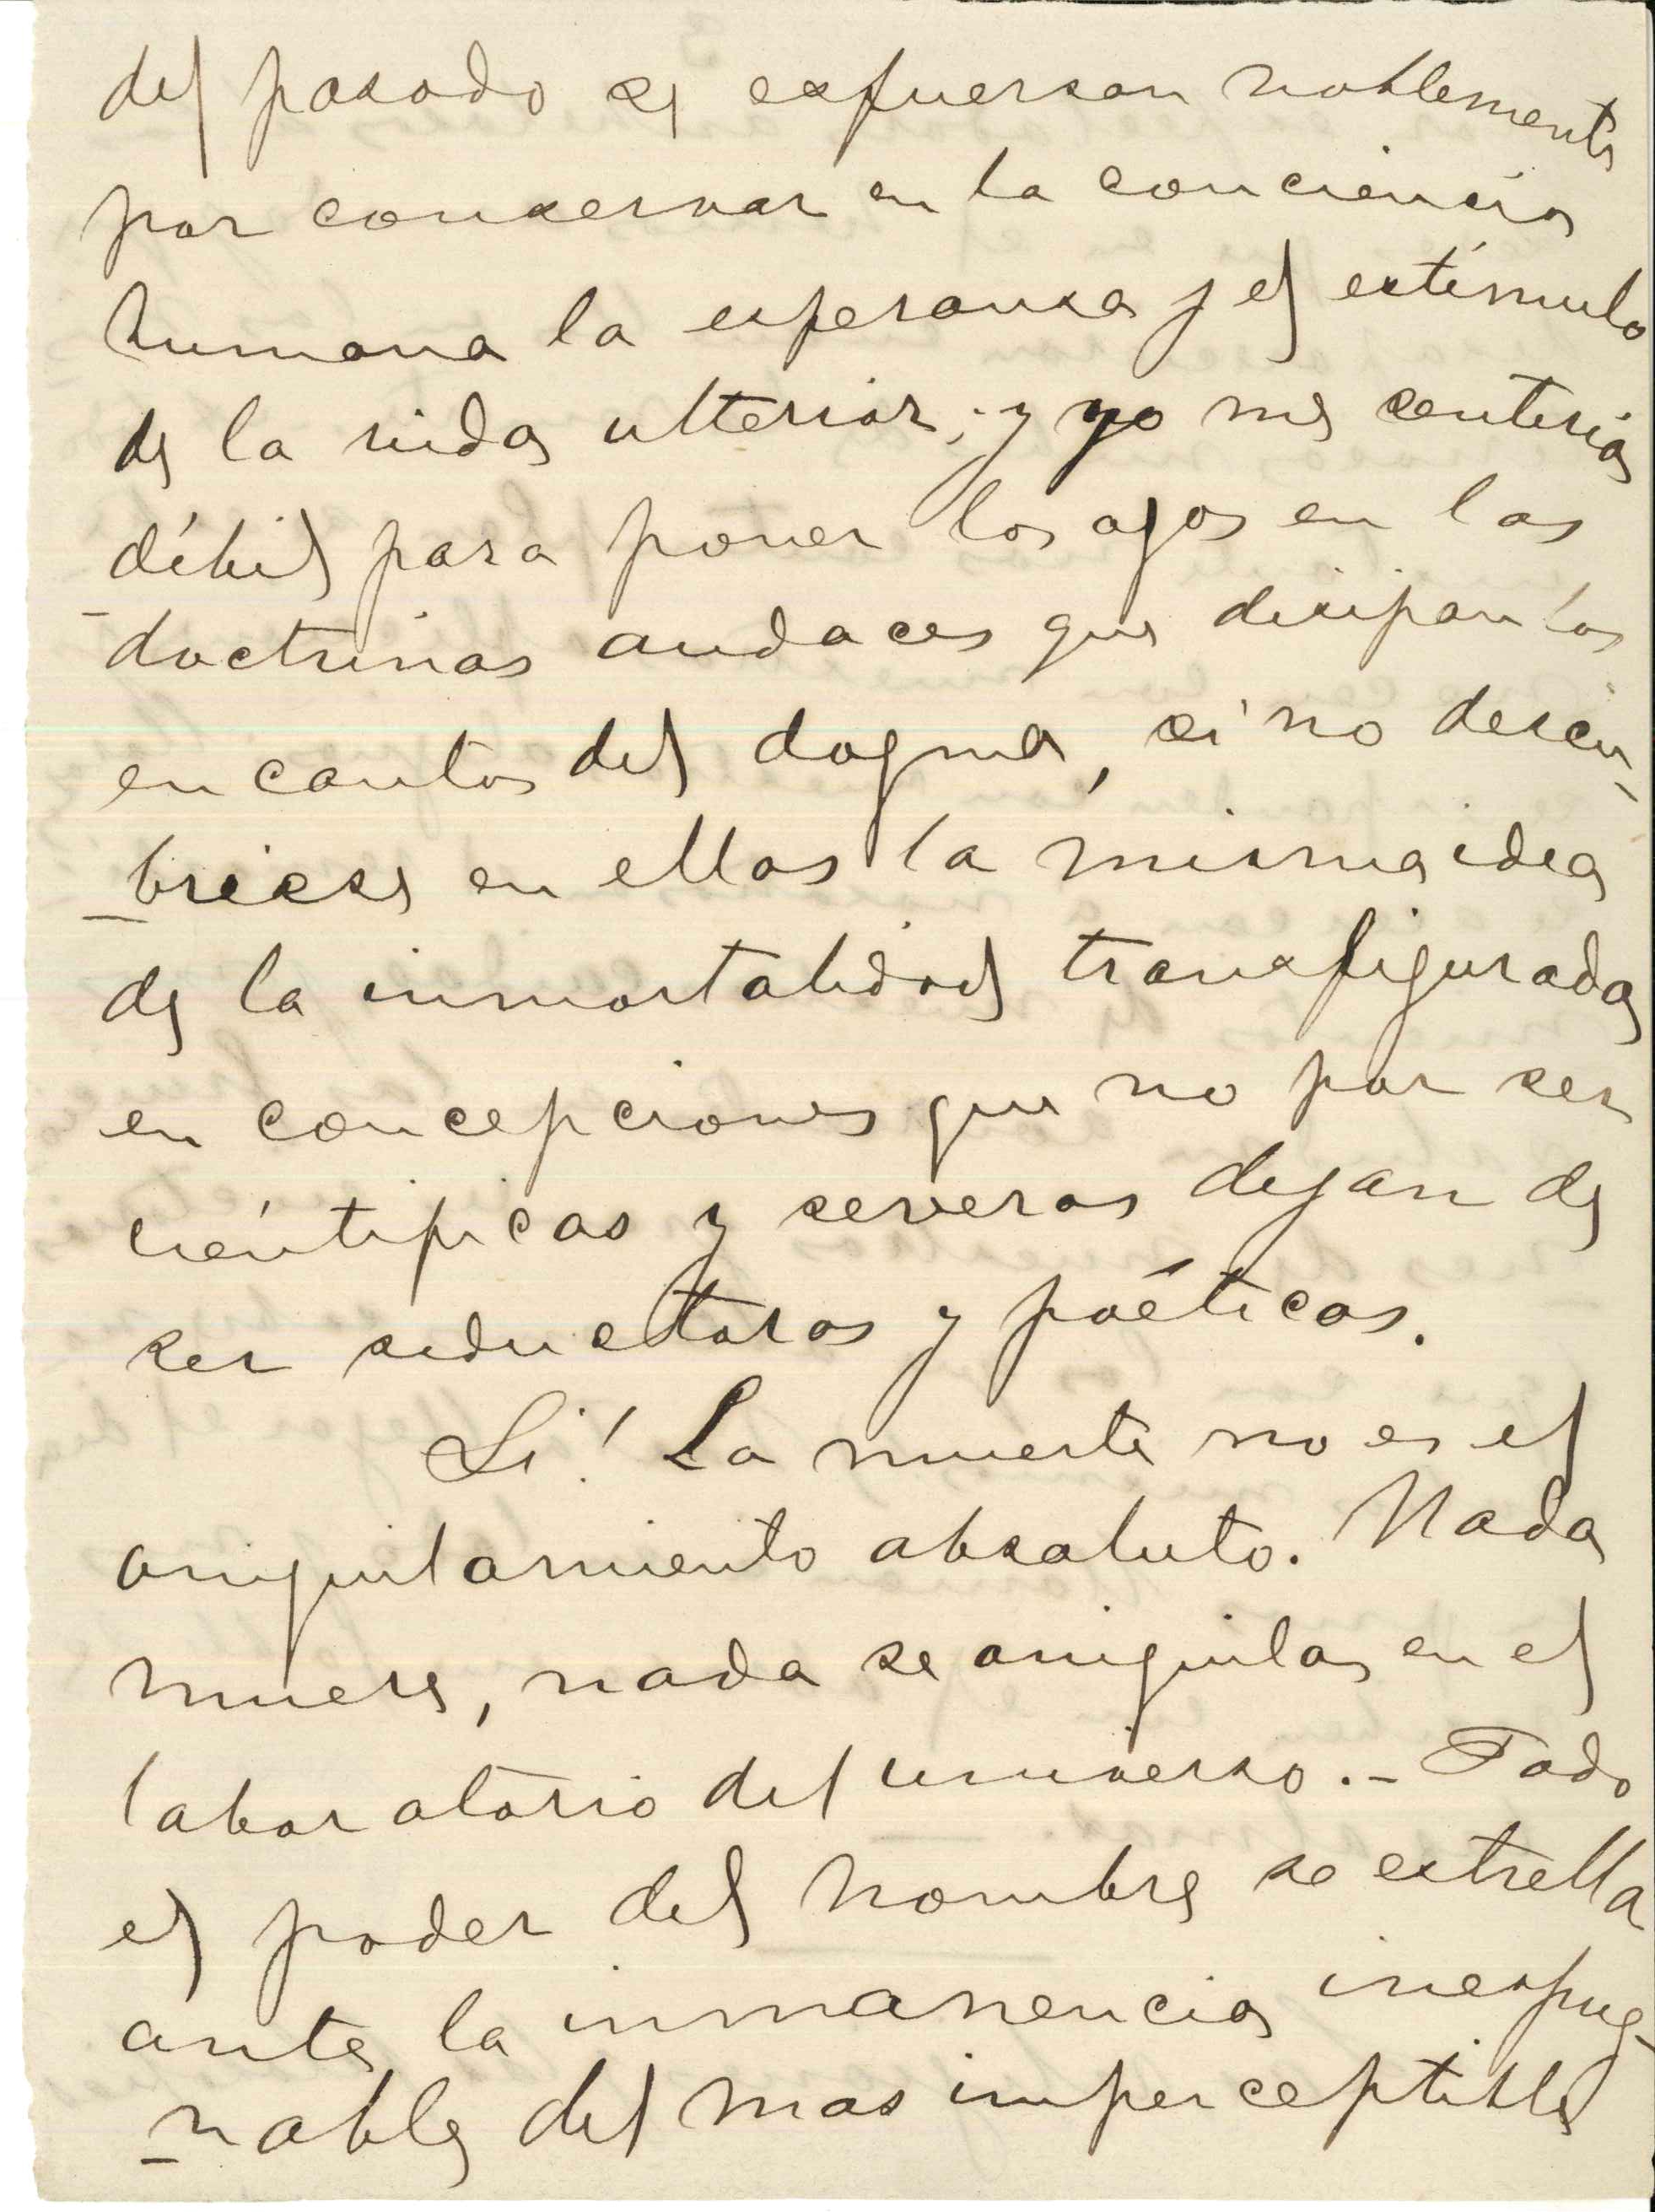 del pasado se esfuerzan noblemente
por conservar en la conciencia
humana la esperanza y el estímulo
de la vida ulterior; y yo me sentiria
débil para poner los ojos en las
doctrinas audaces que disipan los
encantos del dogma, si no descu-
-briese en ellas la misma idea
de la inmortalidad transfigurada
en concepciones que no por ser
ciéntificas y severas dejan de
ser seductoras y poéticas.
Si! La muerte no es el
aniquilamiento absoluto. Nada
muere, nada se aniquila en el
laboratorio del universo.- Todo
el poder del hombre se estrella
ante la inmanencia inexpug-
-nable del mas imperceptible